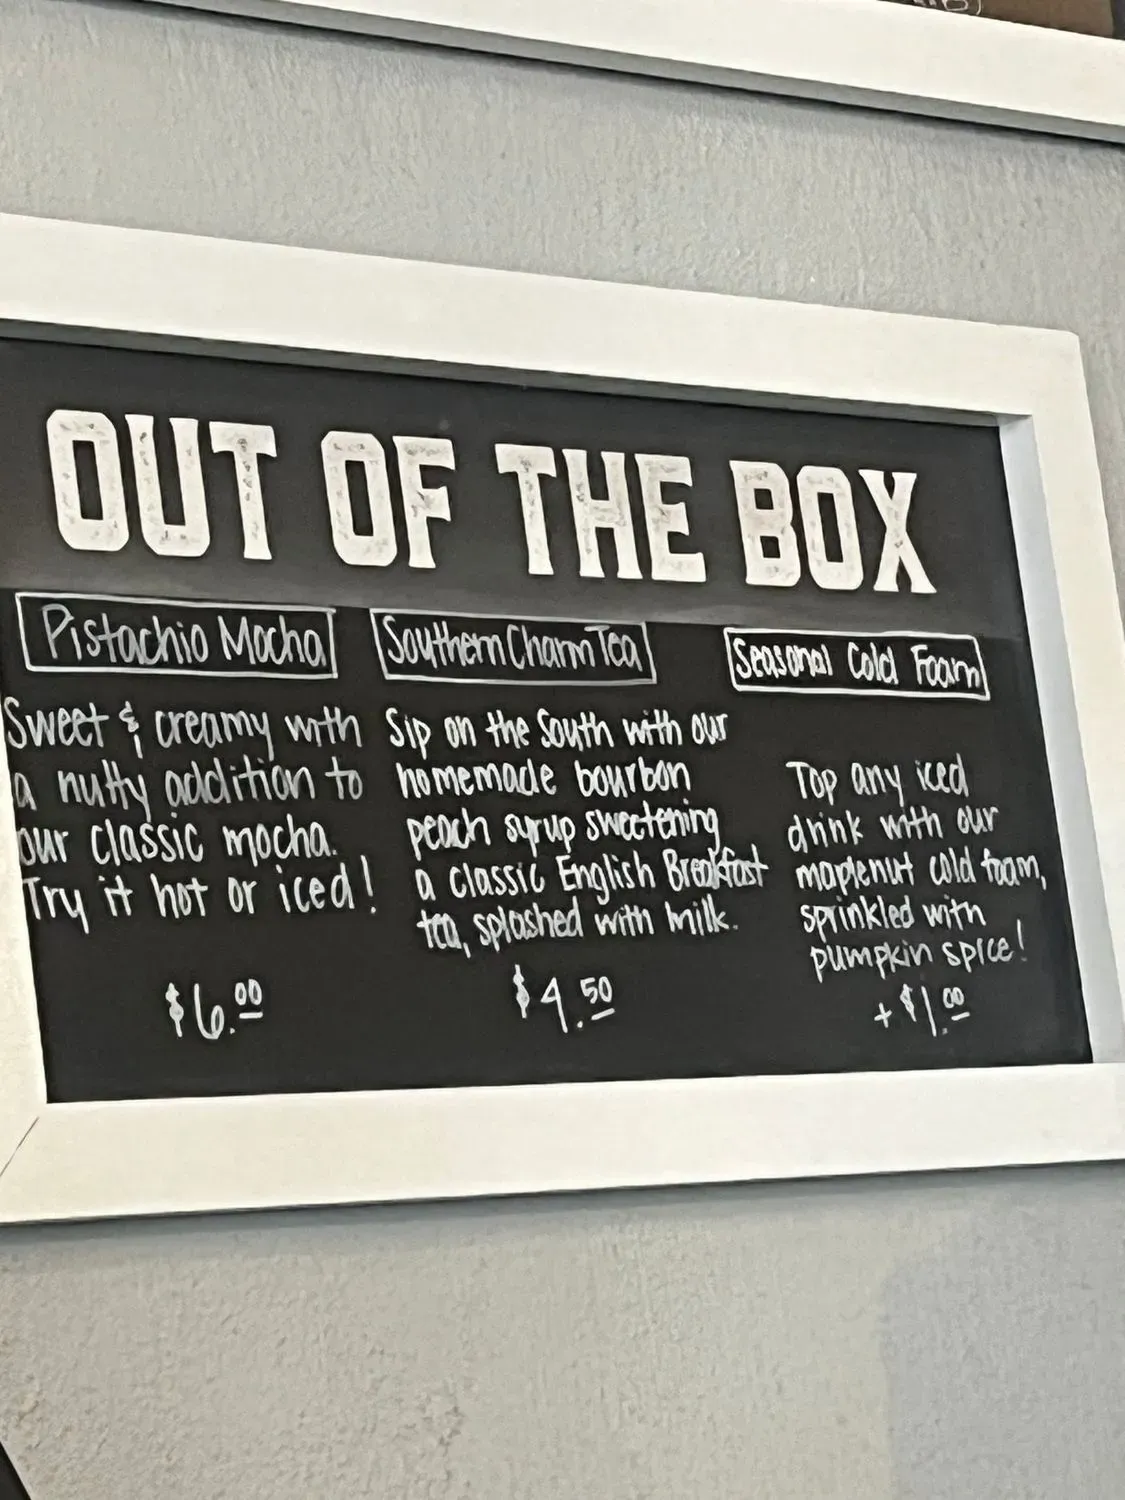 OUT OF THE BOX
Pistachio Mocha
Sweet & creamy with
a nutty addition to
our classic mocha.
Try it hot or iced!
$6.00
Southern Charm Tea
Sip on the South with our
homemade bourbon
peach syrup sweetening
a classic English Breakfast
tea, splashed with milk.
$4.50
Seasonal Cold Foam
Top any iced
drink with our
maplenut cold foam,
sprinkled with
pumpkin spice!
+ $1.00